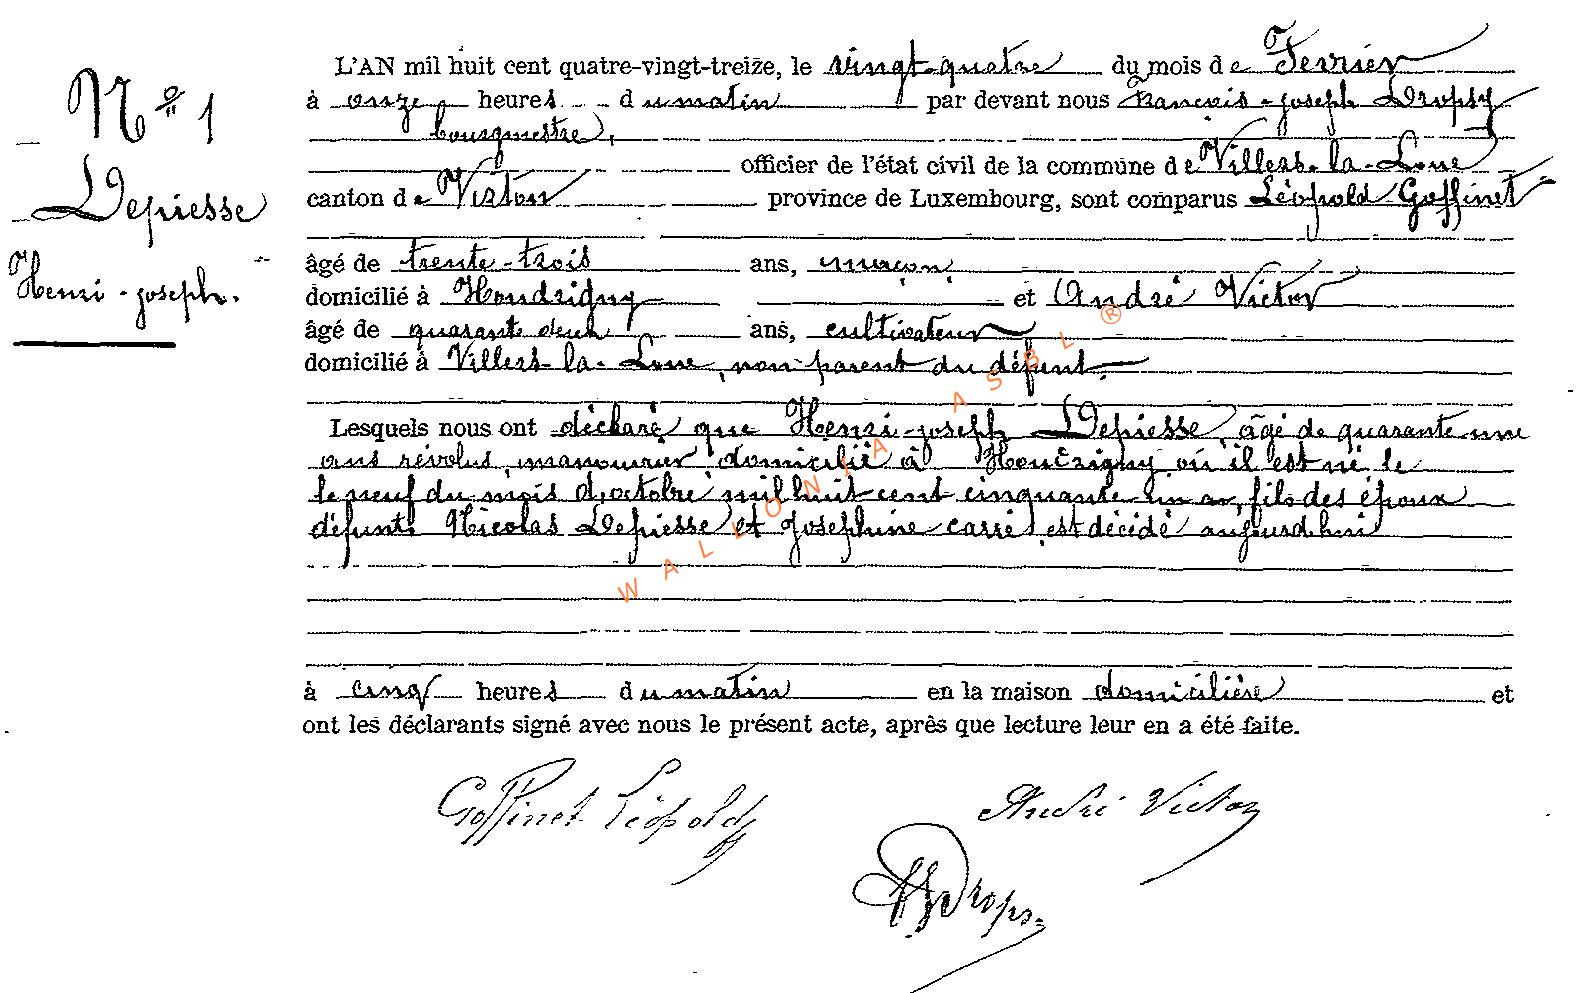 N° 1
Depiesse
Henri-joseph.
L'AN mil huit cent quatre-vingt-treize, le vingt-quatre du mois de Fevrier
à onze heures du matin par devant nous François-joseph Dropsy
bourgmestre,
officier de l'état civil de la commune de Villers-la-Loue
canton de Virton province de Luxembourg, sont comparus Léopold Goffinet
âgé de trente-trois ans, maçon
domicilié à Houdrigny et André Victor
âgé de quarante deux ans, cultivateur
domicilié à Villers-la-Loue, non parent du défunt.
Lesquels nous ont déclaré que Henri-joseph Depiesse, âgé de quarante-une
ans révolus, manouvrier domicilié à Houdrigny où il est né le
le neuf du mois d'octobre mil huit cent cinquante un an, fils des époux
défunts Nicolas Depiesse et Joséphine carré, est décédé aujourd'hui
à cinq heures du matin en la maison domicilière et
ont les déclarants signé avec nous le présent acte, après que lecture leur en a été faite.
Goffinet Léopold
André Victor
Dropsy
WALLONIA ASBL ®